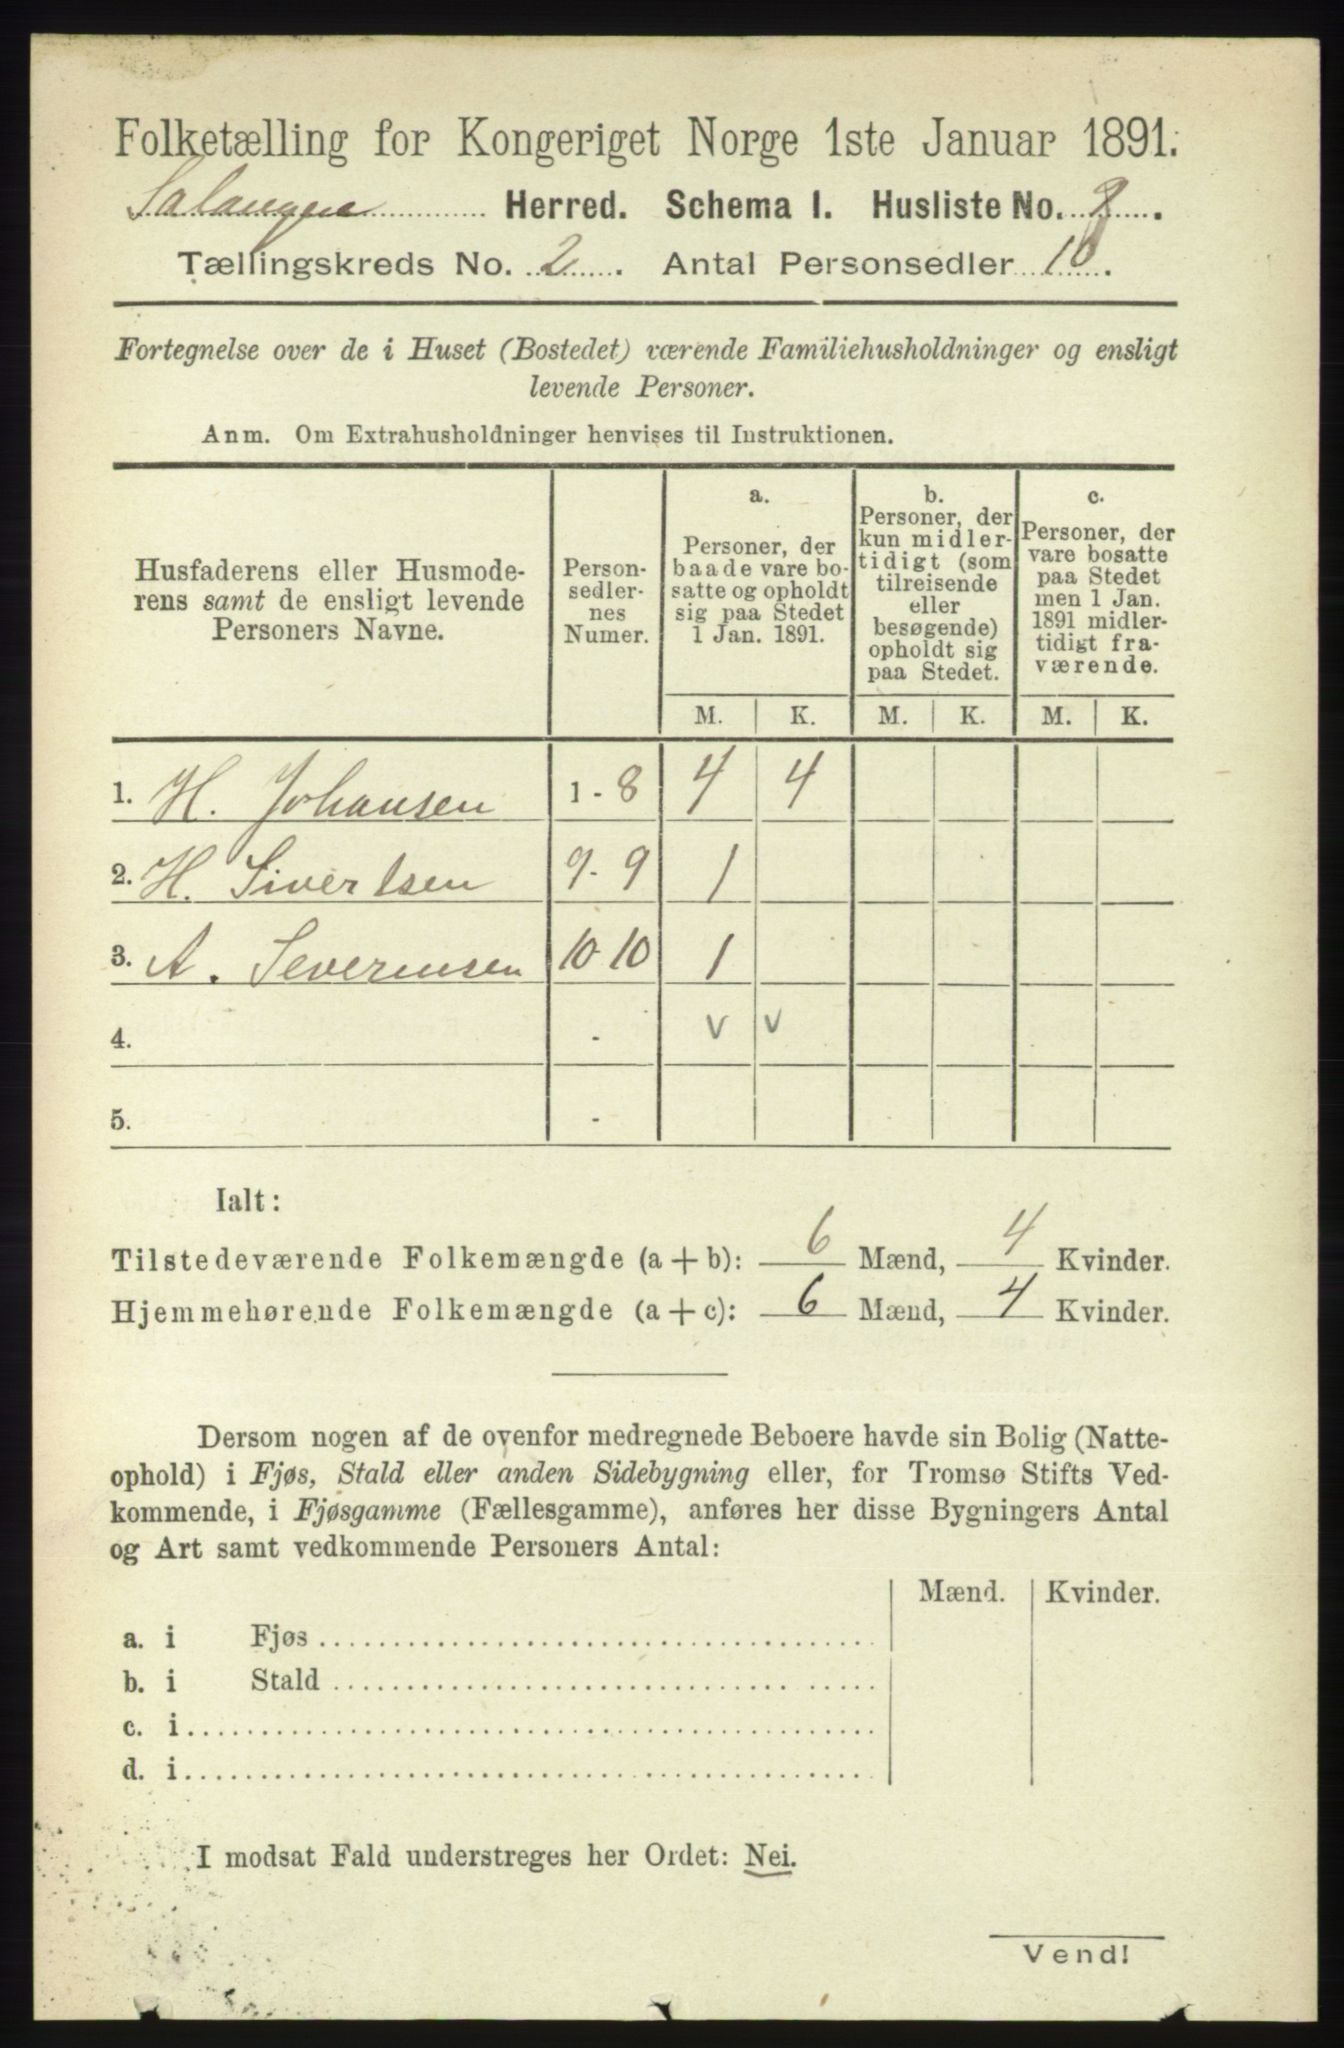 Folketælling for Kongeriget Norge 1ste Januar 1891.
Salangen Herred. Schema I. Husliste No.
Tællingskreds No. 2. Antal Personsedler 10.
Fortegnelse over de i Huset (Bostedet) værende Familiehusholdninger og ensligt
levende Personer.
Anm. Om Extrahusholdninger henvises til Instruktionen.
Husfaderens eller Husmode-
rens samt de ensligt levende
Personers Navne.
Person-
sedler-
nes
Numer.
a.
Personer, der
baade vare bo-
satte og opholdt
sig paa Stedet
1 Jan. 1891.
b.
Personer, der
kun midler-
tidigt (som
tilreisende
eller
besøgende)
opholdt sig
paa Stedet.
c.
Personer, der
vare bosatte
paa Stedet
men 1 Jan.
1891 midler-
tidigt fra-
værende.
M. K. M. K. M. K.
1. H. Johansen 1 - 8 4 4
2. H. Sivertsen 9 - 9 1
3. A. Severinsen 10 - 10 1
4. - v v
5. -
Ialt:
Tilstedeværende Folkemængde (a + b): 6 Mænd, 4 Kvinder.
Hjemmehørende Folkemængde (a + c): 6 Mænd, 4 Kvinder.
Dersom nogen af de ovenfor medregnede Beboere havde sin Bolig (Natte-
ophold) i Fjøs, Stald eller anden Sidebygning eller, for Tromsø Stifts Ved-
kommende, i Fjøsgamme (Fællesgamme), anføres her disse Bygningers Antal
og Art samt vedkommende Personers Antal:
Mænd. Kvinder.
a. i Fjøs
b. i Stald
c. i
d. i
I modsat Fald understreges her Ordet: Nei.
Vend!